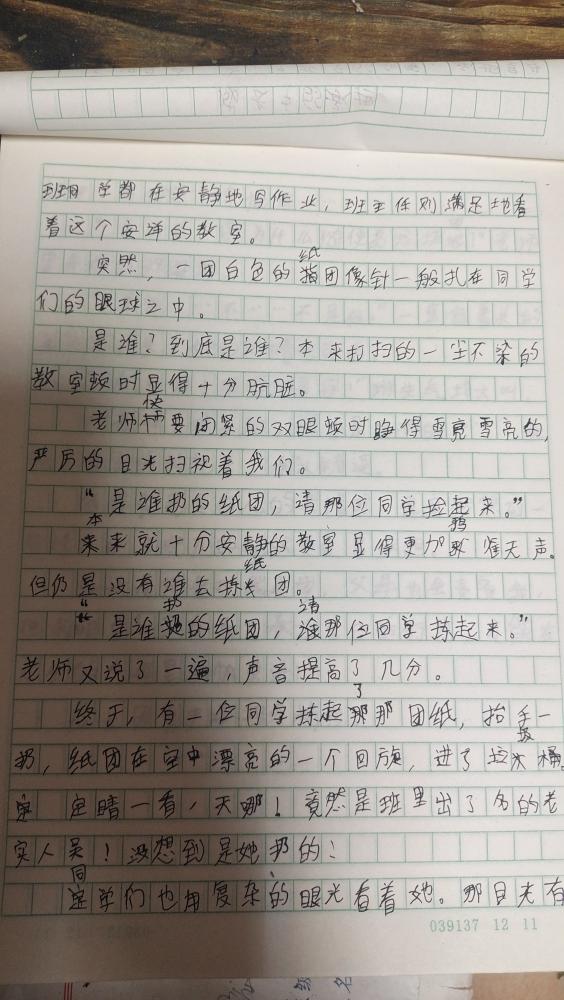 同学都在安静地写作业，班主任则满足地看
着这个安详的教室。
突然，一团白色的纸团像针一般扎在同学
们的眼球之中。
是谁？到底是谁？本来打扫的一尘不染的
教室顿时显得十分肮脏。
老师快要闭紧的双眼顿时睁得雪亮雪亮的，
严厉的目光扫视着我们。
“是谁扔的纸团，请那位同学捡起来。”
本来就十分安静的教室显得更加鸦雀无声。
但仍是没有谁去拣纸团。
“是谁扔的纸团，请那位同学拣起来。”
老师又说了一遍，声音提高了几分。
终于，有一位同学拣起了那团纸，抬手一
扔，纸团在空中漂亮的一个回旋，进了垃圾桶。
定晴一看，天哪！竟然是班里出了名的老
实人吴！没想到是她扔的！
同学们也用复杂的眼光看着她。那目光有
039137 12 11